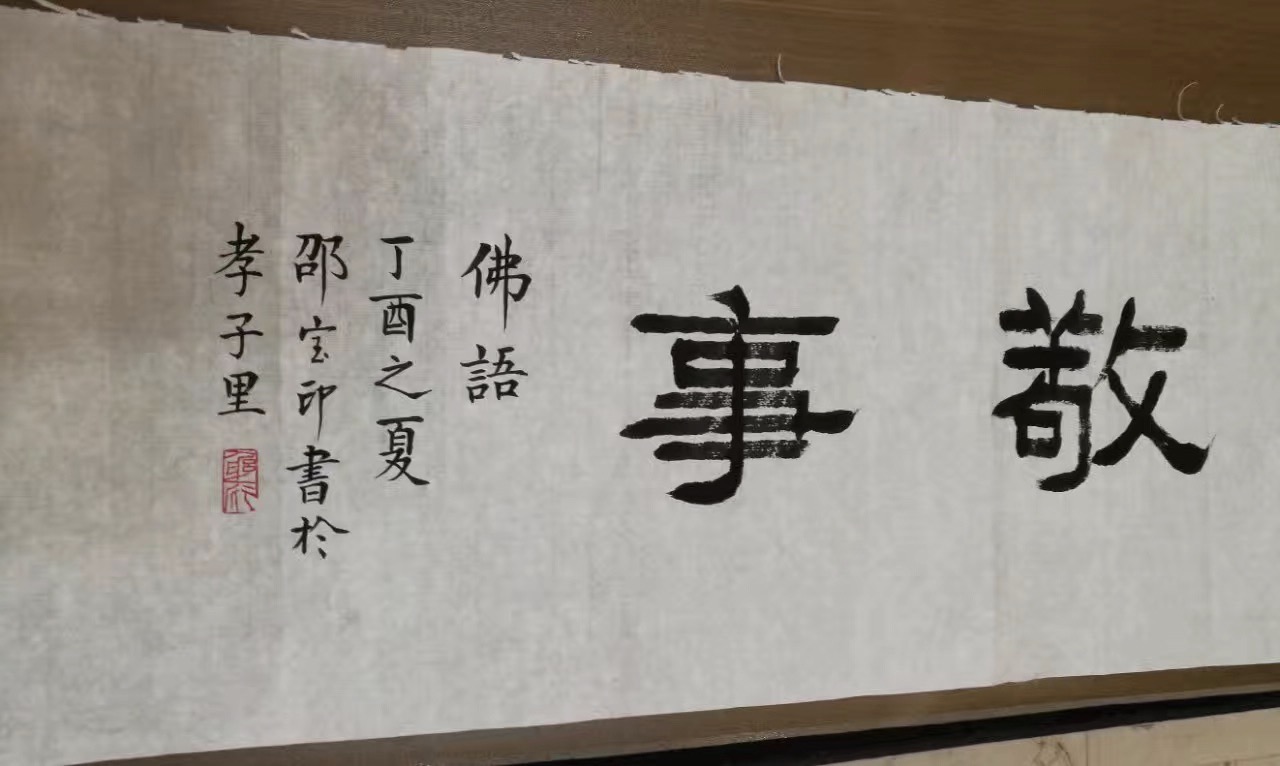 敬事
佛語
丁酉之夏
邵宝印書於
孝子里